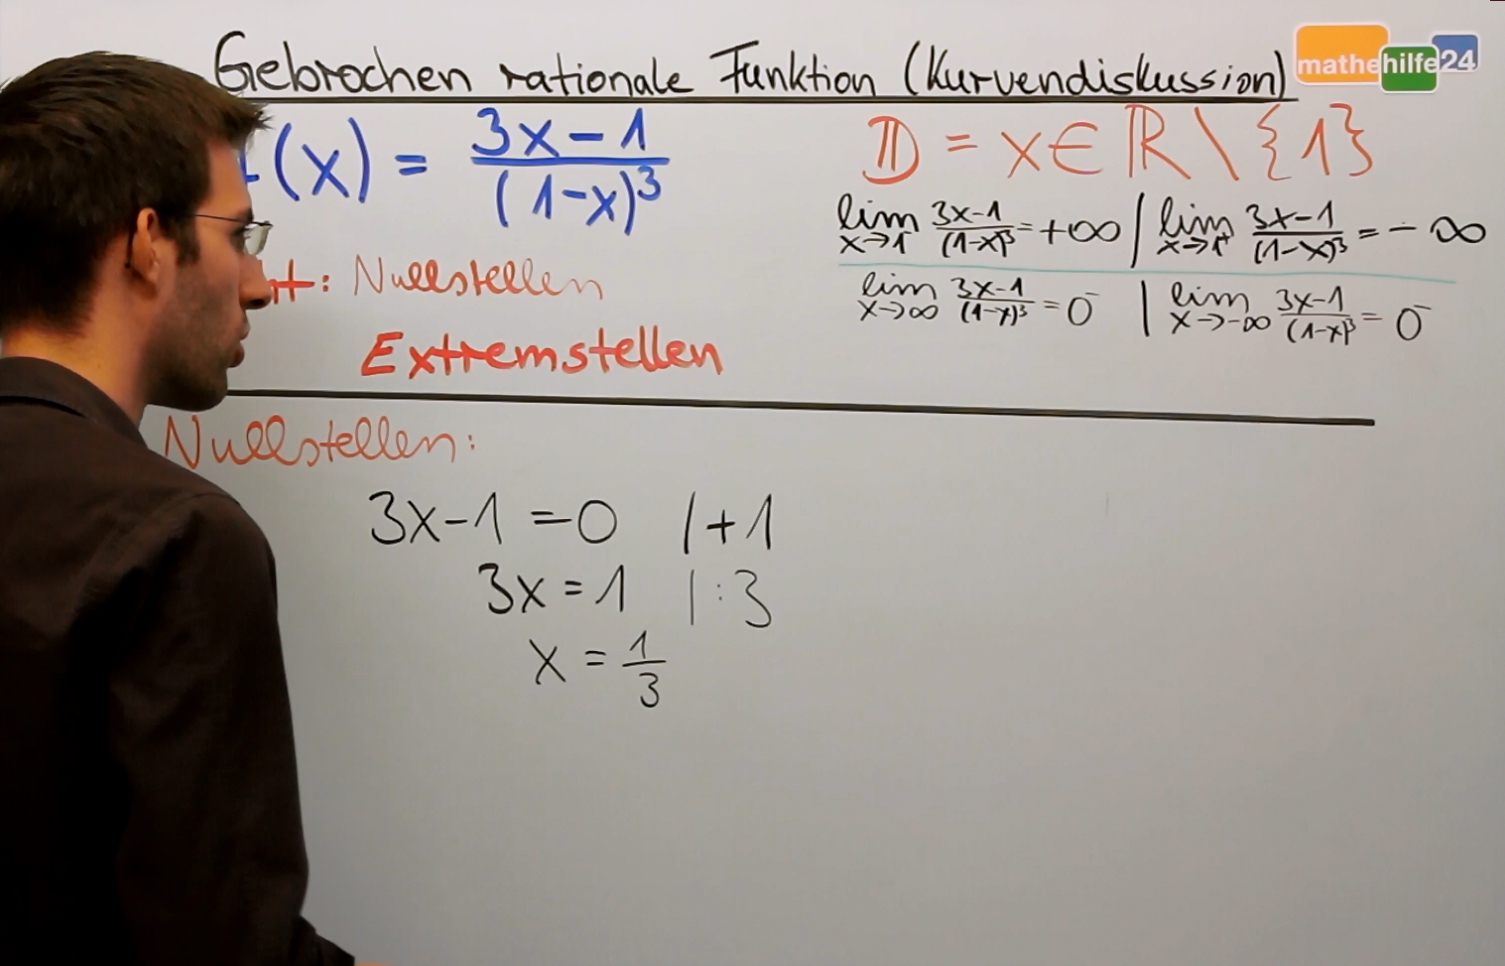 Gebrochen rationale Funktion (Kurvendiskussion)
mathehilfe24
(x) = (3x-1)/(1-x)³
𝔻 = x∈ℝ\{1}
lim x→1⁻ (3x-1)/(1-x)³ = +∞ | lim x→1⁺ (3x-1)/(1-x)³ = -∞
lim x→∞ (3x-1)/(1-x)³ = 0⁻ | lim x→-∞ (3x-1)/(1-x)³ = 0⁻
: Nullstellen
Extremstellen
Nullstellen:
3x-1 = 0 | +1
3x = 1 | :3
x = 1/3